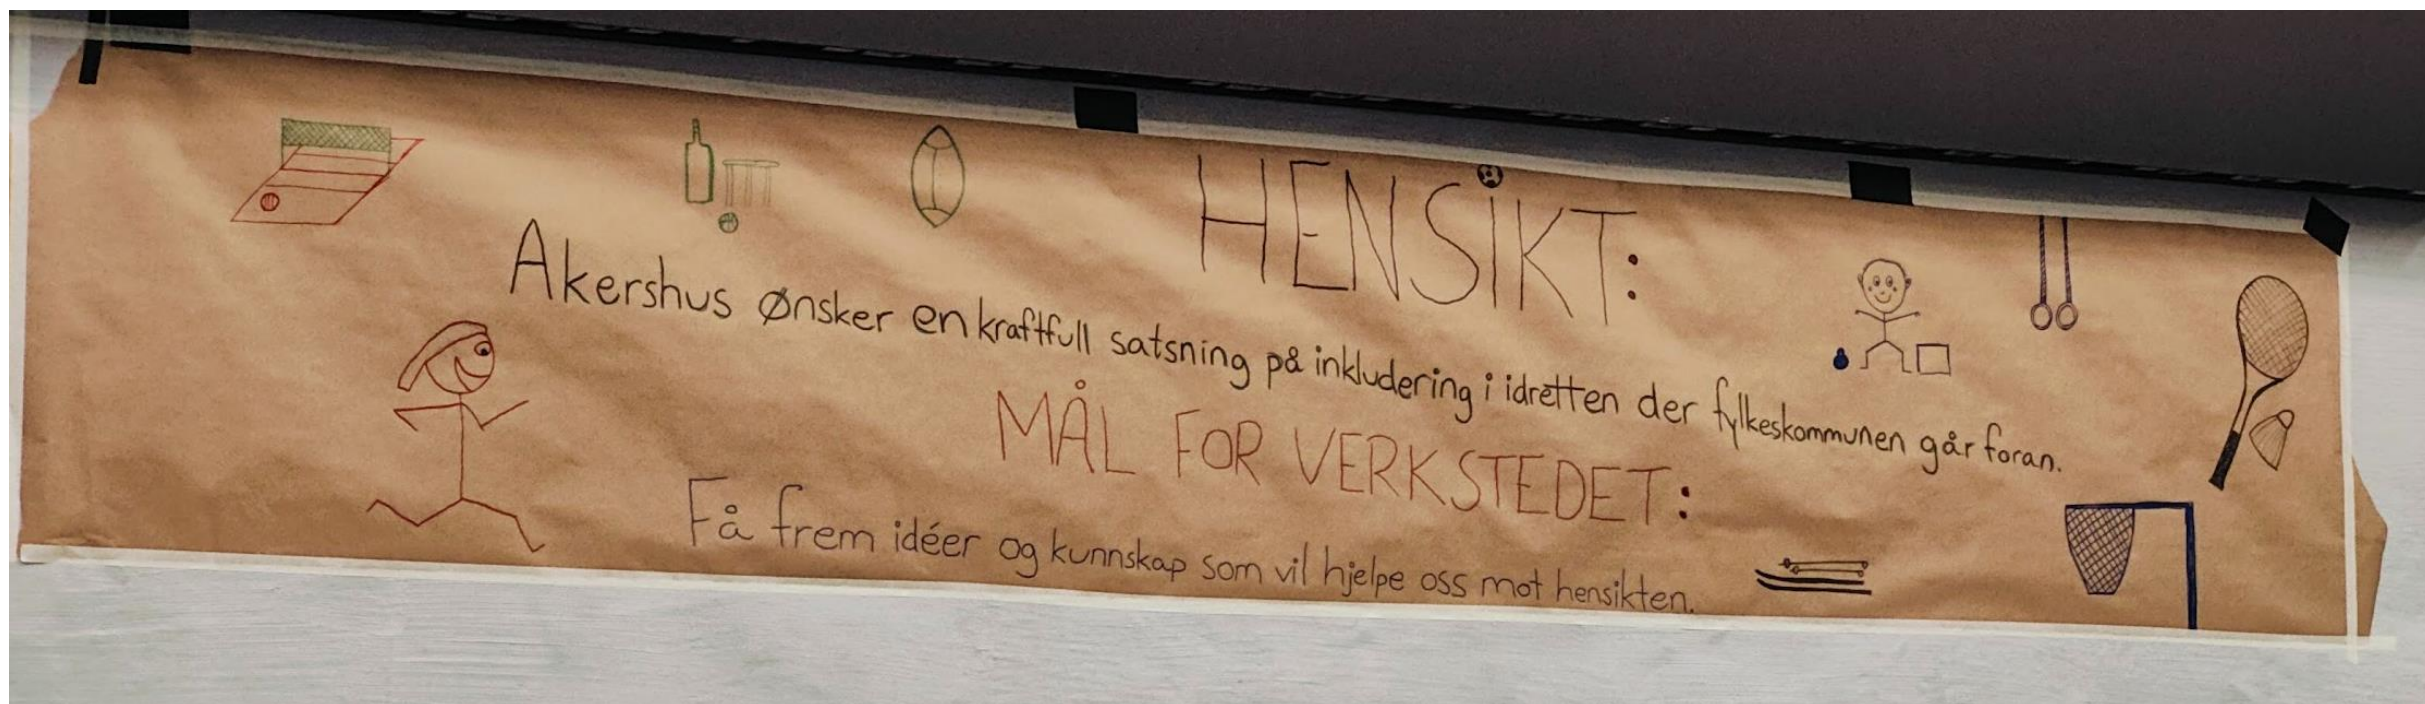 HENSiKT:
Akershus ønsker en kraftfull satsning på inkludering i idretten der fylkeskommunen går foran.
MÅL FOR VERKSTEDET:
Få frem idéer og kunnskap som vil hjelpe oss mot hensikten.